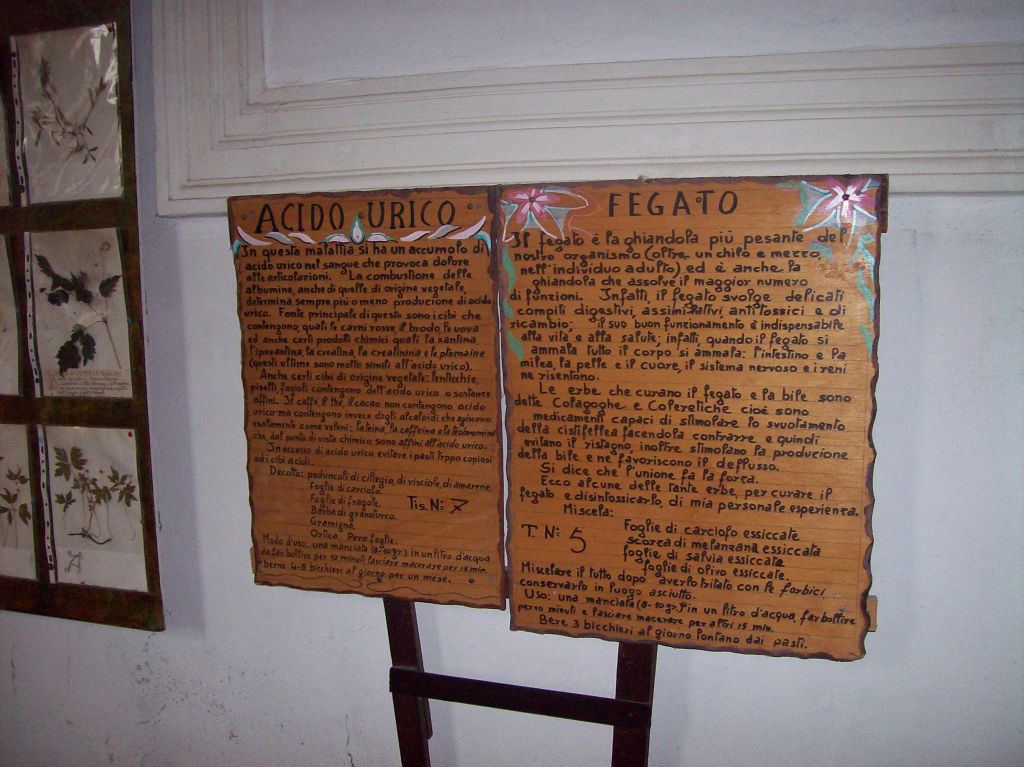 ACIDO URICO
In questa malattia si ha un accumolo di
acido urico nel sangue che provoca dolore
alle articolazioni. La combustione delle
albumine, anche di quelle di origine vegetale,
determina sempre più o meno produzione di acido
urico. Fonte principale di questo sono i cibi che
contengono, quali le carni rosse, il brodo, le uova
ed anche certi prodotti chimici quali la xantina,
l'ipoxantina, la creatina, la creatinina e le ptomaine
(questi ultime sono molto simili all'acido urico).
Anche certi cibi di origine vegetale: lenticchie,
piselli, fagioli contengono dell'acido urico o sostanze
affini. Il caffè, il thè, il cacao non contengono acido
urico ma contengono invece degli alcaloidi che agiscono
esattamente come veleni: la teina, la caffeina e la teobromina
che, dal punto di vista chimico, sono affini all'acido urico.
In eccesso di acido urico evitare i pasti troppo copiosi
ed i cibi acidi.
Decotto: peduncoli di ciliegio, di visciole, di amarene
Foglie di carciofo.
Foglie di fragole. Tis. N: 7
Barba di granoturco.
Gramigna.
Ortica, Pero foglie.
Modo d'uso: una manciata (8-10 gr.) in un litro d'acqua
da far bollire per 10 minuti, lasciare macerare per 15 min.
e berne 4-5 bicchieri al giorno per un mese.
FEGATO
Il fegato è la ghiandola più pesante del
nostro organismo (oltre un chilo e mezzo
nell'individuo adulto) ed è anche la
ghiandola che assolve il maggior numero
di funzioni. Infatti, il fegato svolge delicati
compiti digestivi, assimilativi, antitossici e di
ricambio; il suo buon funzionamento è indispensabile
alla vita e alla salute; infatti, quando il fegato si
ammala tutto il corpo si ammala: l'intestino e la
milza, la pelle e il cuore, il sistema nervoso e i reni
ne risentono.
Le erbe che curano il fegato e la bile sono
dette Colagoghe e Coleretiche cioè sono
medicamenti capaci di stimolare lo svuotamento
della cistifellea facendola contrarre e quindi
evitano il ristagno, inoltre stimolano la produzione
della bile e ne favoriscono il deflusso.
Si dice che l'unione fa la forza.
Ecco alcune delle tante erbe, per curare il
fegato e disintossicarlo, di mia personale esperienza.
Miscela:
T. N: 5
Foglie di carciofo essiccate
scorza di melanzana essiccata
foglie di salvia essiccate
foglie di olivo essiccate
Miscelare il tutto dopo averlo tritato con le forbici,
conservarlo in luogo asciutto.
Uso: una manciata (8-10 gr.) in un litro d'acqua, far bollire
per 10 minuti e lasciare macerare per altri 15 min.
Bere 3 bicchieri al giorno lontano dai pasti.